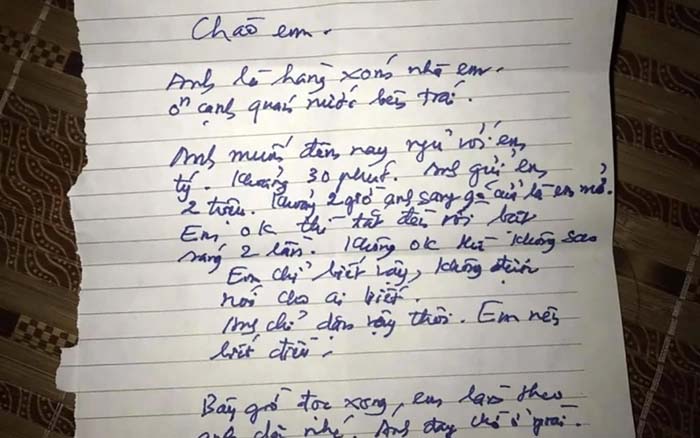 Chào em.
Anh là hàng xóm nhà em.
ở cạnh quán nước bên trái.
Anh muốn đêm nay ngủ với em
tý. Khoảng 30 phút. Anh gửi em
2 triệu. Khoảng 2 giờ anh sang gõ cửa là em mở.
Em ok thì tắt đèn rồi bật
sáng 2 lần. Không ok thì không sao
Em chỉ biết vậy, không được
nói cho ai biết.
Anh chỉ dặn vậy thôi. Em nên
biết điều.
Bây giờ đọc xong, em làm theo
anh dặn nhé. Anh đây chờ ở